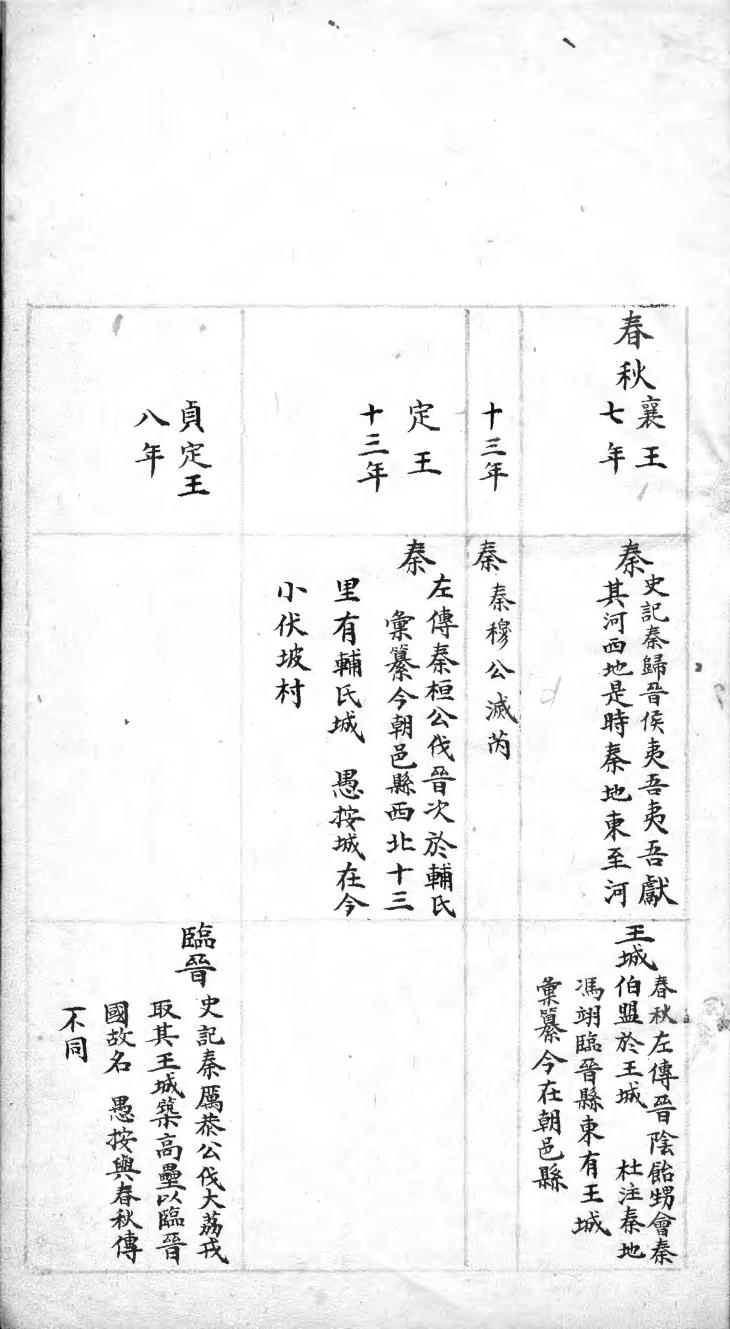 春秋
襄王
七年
秦
史記秦歸晉侯夷吾夷吾獻
其河西地是時秦地東至河
王城
春秋左傳晉陰飴甥會秦
伯盟於王城　杜注秦地
馮翊臨晉縣東有王城
彙纂今在朝邑縣
十三年
秦
秦穆公滅芮
定王
十三年
秦
左傳秦桓公伐晉次於輔氏
彙纂今朝邑縣西北十三
里有輔氏城　愚按城在今
小伏坡村
貞定王
八年
臨晉
史記秦厲恭公伐大荔戎
取其王城築高壘以臨晉
國故名　愚按與春秋傳
不同